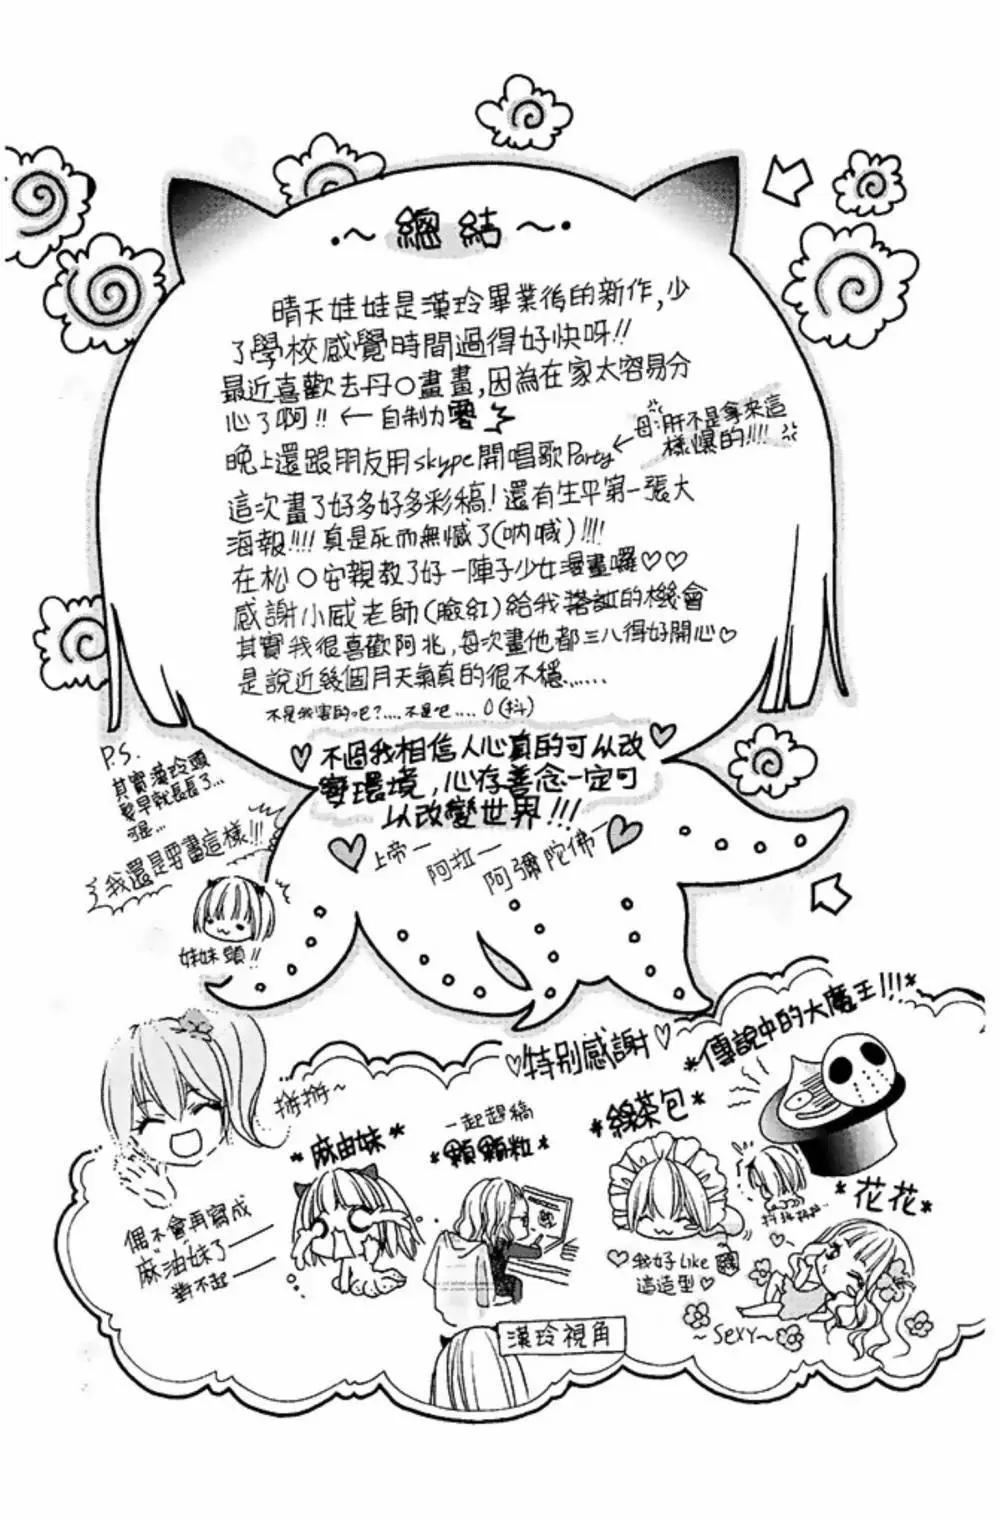 •～ 總結 ～•
晴天娃娃是漢玲畢業後的新作,少
了學校感覺時間過得好快呀!!
最近喜歡去丹○畫畫,因為在家太容易分
心了啊!! ← 自制力零
晚上還跟朋友用skype開唱歌Party ←
母:肝不是拿來這
樣爆的!!!!
這次畫了好多好多彩稿!還有生平第一張大
海報!!!!真是死而無憾了(吶喊)!!!!
在松○安親教了好一陣子少女漫畫囉♡♡
感謝小威老師(臉紅)給我搭訕的機會
其實我很喜歡阿兆,每次畫他都三八得好開心♡
是說近幾個月天氣真的很不穩......
不是我害的吧?....不是吧....(抖)
♡不過我相信人心真的可以改♡
變環境,心存善念一定可
以改變世界!!!
上帝一
阿拉一
阿彌陀佛一
P.S.
其實漢玲頭
髮早就長長了...
可是...
我還是要畫這樣!!!
妹妹頭!!
♡特別感謝♡
*傳說中的大魔王!!!*
掰掰~
偶不會再寫成
"麻油妹"了
對不起
*麻由妹*
一起趕稿
*顆顆粒*
漢玲視角
*綠茶包*
♡我好like
這造型♡
*花花*
~Sexy~